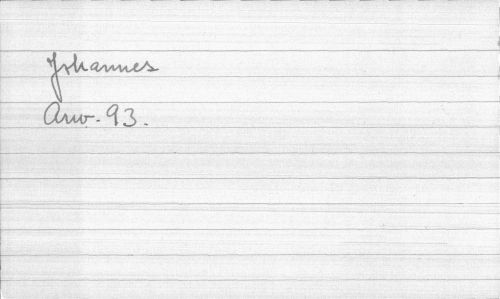 Johannes
Arw. 93.